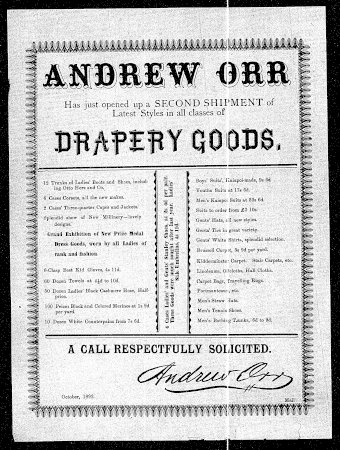 ANDREW ORR
Has just opened up a SECOND SHIPMENT of
Latest Styles in all classes of
DRAPERY GOODS.
12 Trunks of Ladies' Boots and Shoes, includ-
ing Otto Herz and Co.
6 Cases Corsets, all the new makes.
2 Cases Three-quarter Capes and Jackets.
Splendid show of New Millinery—lovely
designs.
Grand Exhibition of New Prize Medal
Dress Goods, worn by all Ladies of
rank and fashion.
6-Clasp Best Kid Gloves, 4s 11d.
60 Dozen Towels at
30 Dozen Ladies' Black Cashmere Hose, Half-
price.
100 Pieces Black and Colored Merinos at 1s 6d
per yard.
10 Dozen White Counterpanes from 7s 6d.
4 Cases Ladies' and Gents' Stanley Shoes, at 5s 6d per pair.
These Goods were much sought after last year. Ladies'
Silk Umbrellas, 4s 11d.
Boys' Suits, Kaiapoi-made, 9s 6d
Youths Suits at 17s 6d.
Men's Kaiapoi Suits at
Suits to order from £3 10s
Gents' Hats, all new styles.
Gents' Ties in great variety.
Gents' White Shirts, splendid selection.
Brussell Carpet, 3s 9d per yard.
Kidderminster Carpet. Stair Carpets, etc.
Linoleums, Oilcloths, Hall Cloths.
Carpet Bags, Travelling Bags.
Portmanteaus, etc.
Men's Straw Hats.
Men's Tennis Shoes.
Men's Bathing Trunks, 6d to 9d.
A CALL RESPECTFULLY SOLICITED.
Andrew Orr
October, 1893.